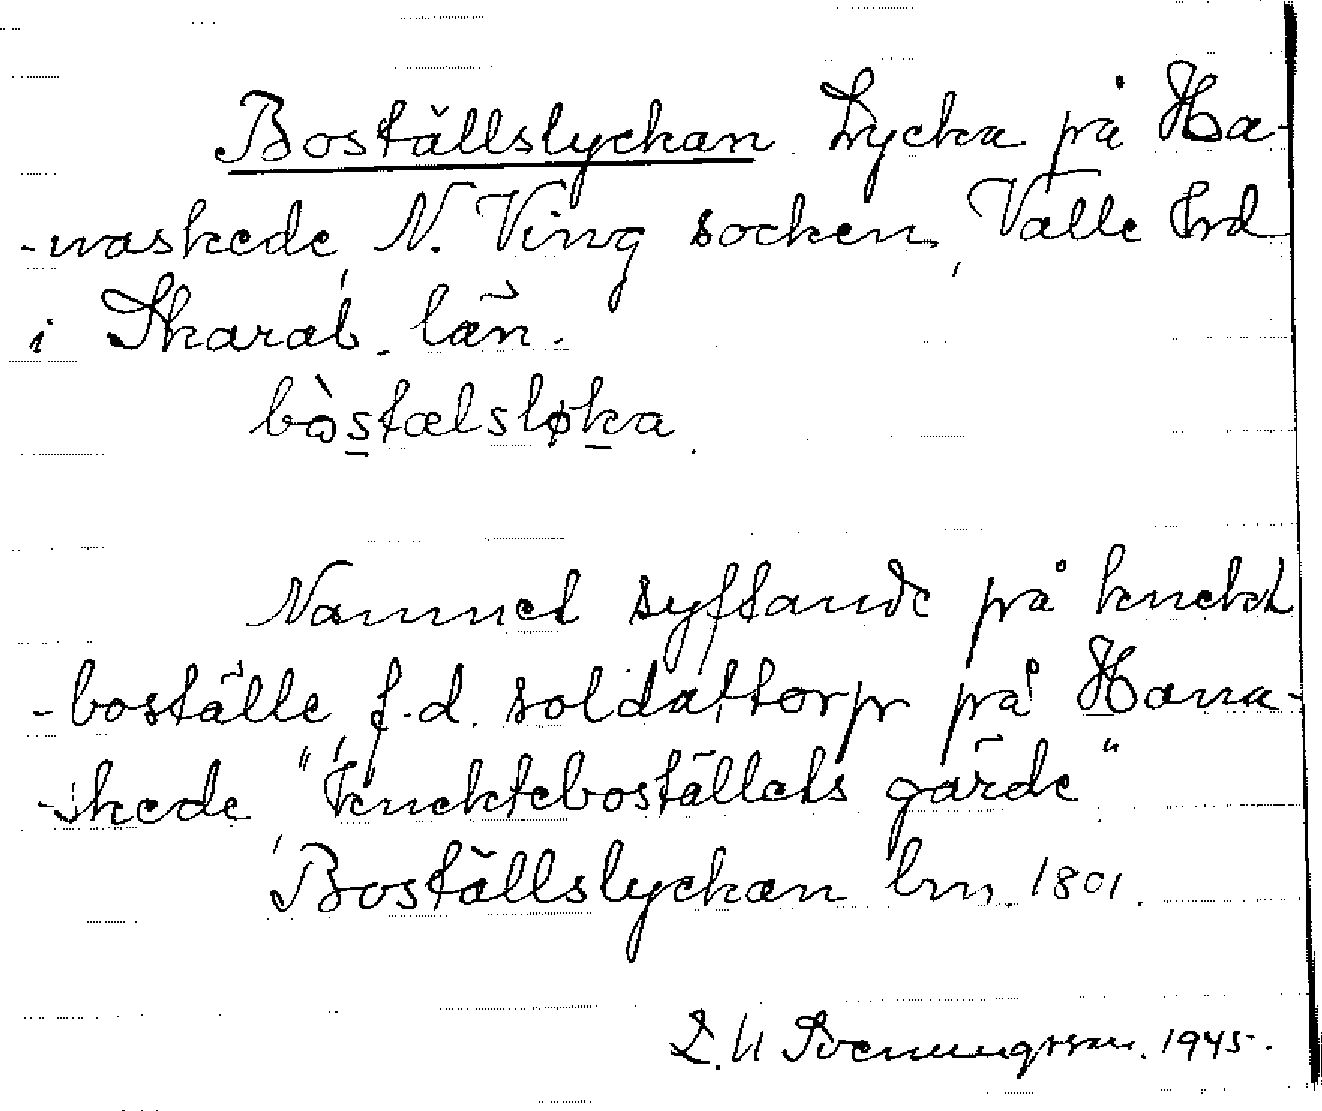 Boställslyckan Lycka på Ha-
-naskede, N. Ving socken, Valle hrd
i Skarab. län.
bòstælsløka.
Namnet syftande på knekt
-boställe, f.d. soldattorp på Hana-
-skede, "knektebostället gärde"
Boställslyckan lm. 1801.
L. U Svenungsson. 1945.